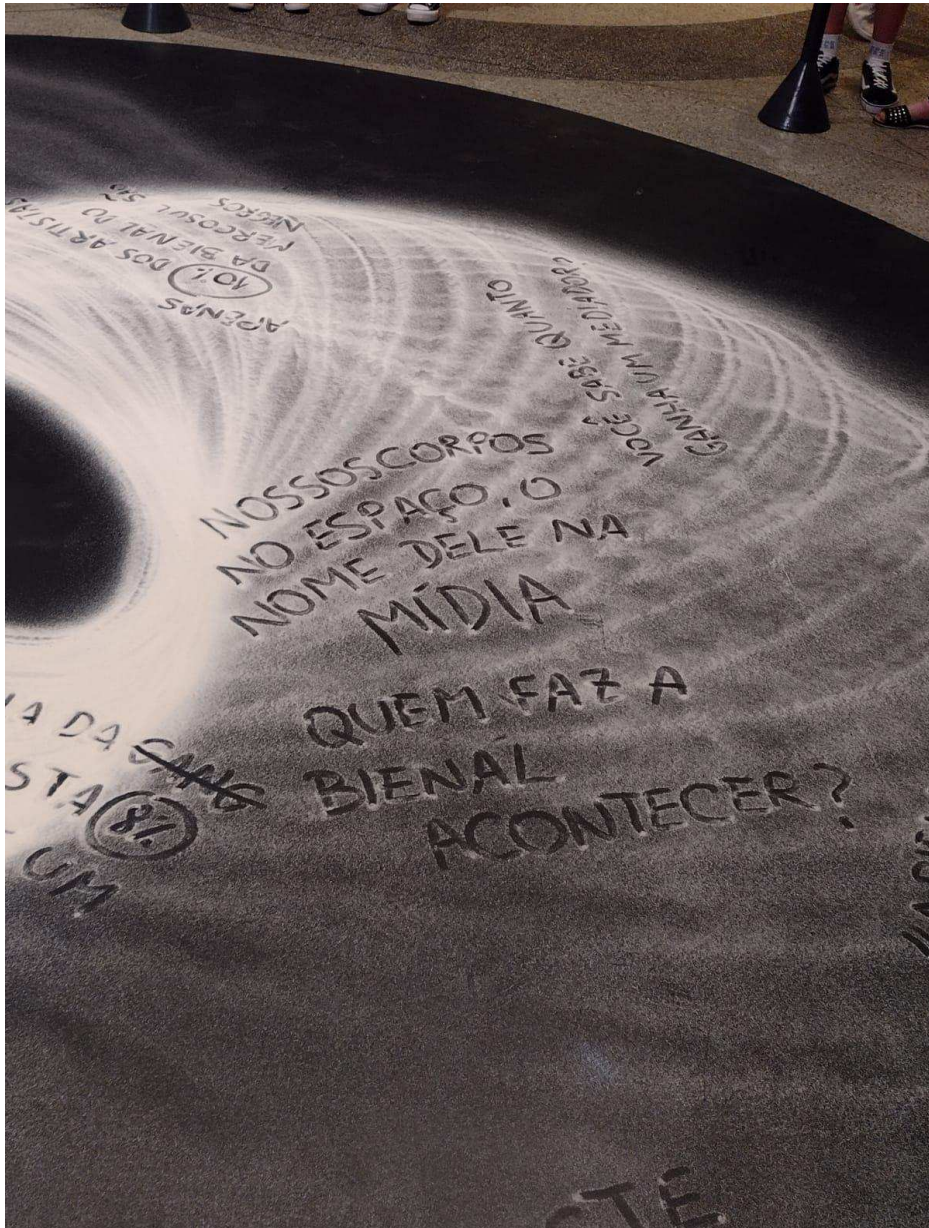 APENAS
10% DOS ARTISTAS
DA BIENAL DO
MERCOSUL SÃO
NEGROS
VOCÊ SABE QUANTO
GANHA UM MEDIADOR?
NOSSOS CORPOS
NO ESPAÇO, O
NOME DELE NA
MÍDIA
QUEM FAZ A
BIENAL
ACONTECER?
IA DA
STA 8%
UM
STE